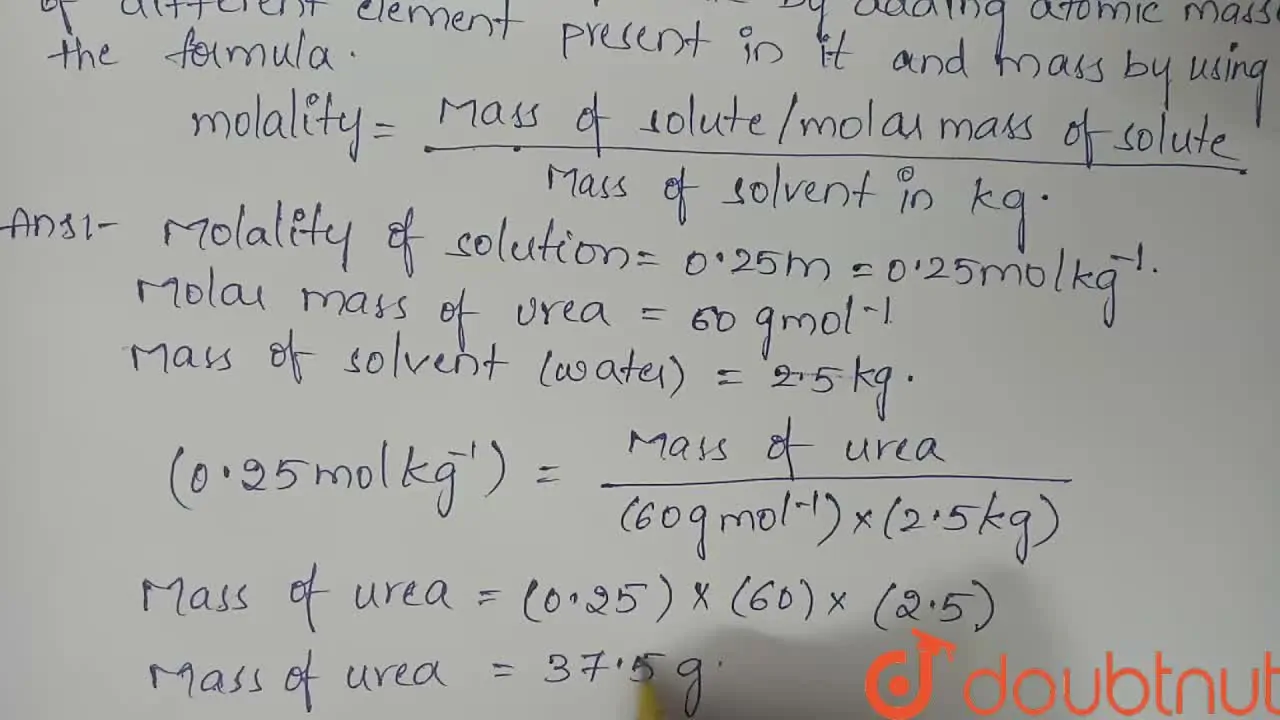 of different element present in it by adding atomic mass
the formula. and mass by using
molality = Mass of solute/molar mass of solute
Mass of solvent in kg.
Ans:- Molality of solution = 0.25m = 0.25molkg⁻¹.
Molar mass of urea = 60 gmol⁻¹
Mass of solvent (water) = 2.5kg.
(0.25molkg⁻¹) = Mass of urea
(60gmol⁻¹)×(2.5kg)
Mass of urea = (0.25)×(60)×(2.5)
Mass of urea = 37.5g.
doubtnut